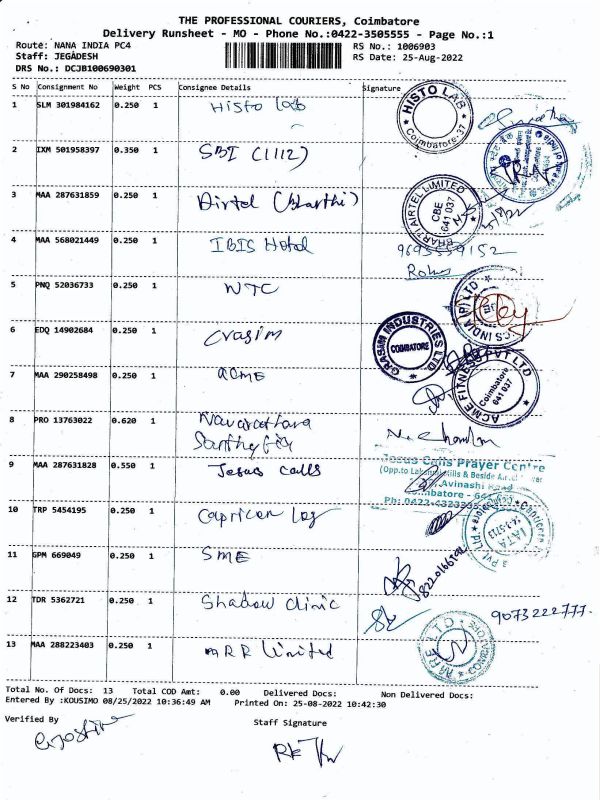 THE PROFESSIONAL COURIERS, Coimbatore
Delivery Runsheet - MO - Phone No.:0422-3505555 - Page No.:1
Route: NANA INDIA PC4 RS No.: 1006903
Staff: JEGADESH RS Date: 25-Aug-2022
DRS No.: DCJB100690301
S No Consignment No Weight PCS Consignee Details Signature
1 SLM 301984162 0.250 1 Histo lab
HISTO LAB
Coimbatore-37
2 IXM 501958397 0.350 1 SBI (1112)
3 MAA 287631859 0.250 1 Airtel (Bharthi)
BHARTI AIRTEL LIMITED
CBE
641 037
4 MAA 568021449 0.250 1 IBIS Hotel
9695559152
5 PNQ 52036733 0.250 1 WTC
6 EDQ 14902684 0.250 1 Grasim
GRASIM INDUSTRIES LTD
COIMBATORE
7 MAA 290258498 0.250 1 ACME
ACME FITNESS PVT LTD
Coimbatore
641 037
8 PRO 13763022 0.620 1 Navarathana
9 MAA 287631828 0.550 1 Jesus calls
Jesus Calls Prayer Centre
(Opp.to Lakshmi Mills & Beside
Avinashi Road
Coimbatore - 641
Ph: 0422-4323
10 TRP 5454195 0.250 1 Capricon Log
IATA
11 GPM 669049 0.250 1 SME
12 TDR 5362721 0.250 1 Shadow clinic
9073222777.
13 MAA 288223403 0.250 1 MRR Limited
Total No. Of Docs: 13 Total COD Amt: 0.00 Delivered Docs: Non Delivered Docs:
Entered By :KOUSIMO 08/25/2022 10:36:49 AM Printed On: 25-08-2022 10:42:30
Verified By Staff Signature